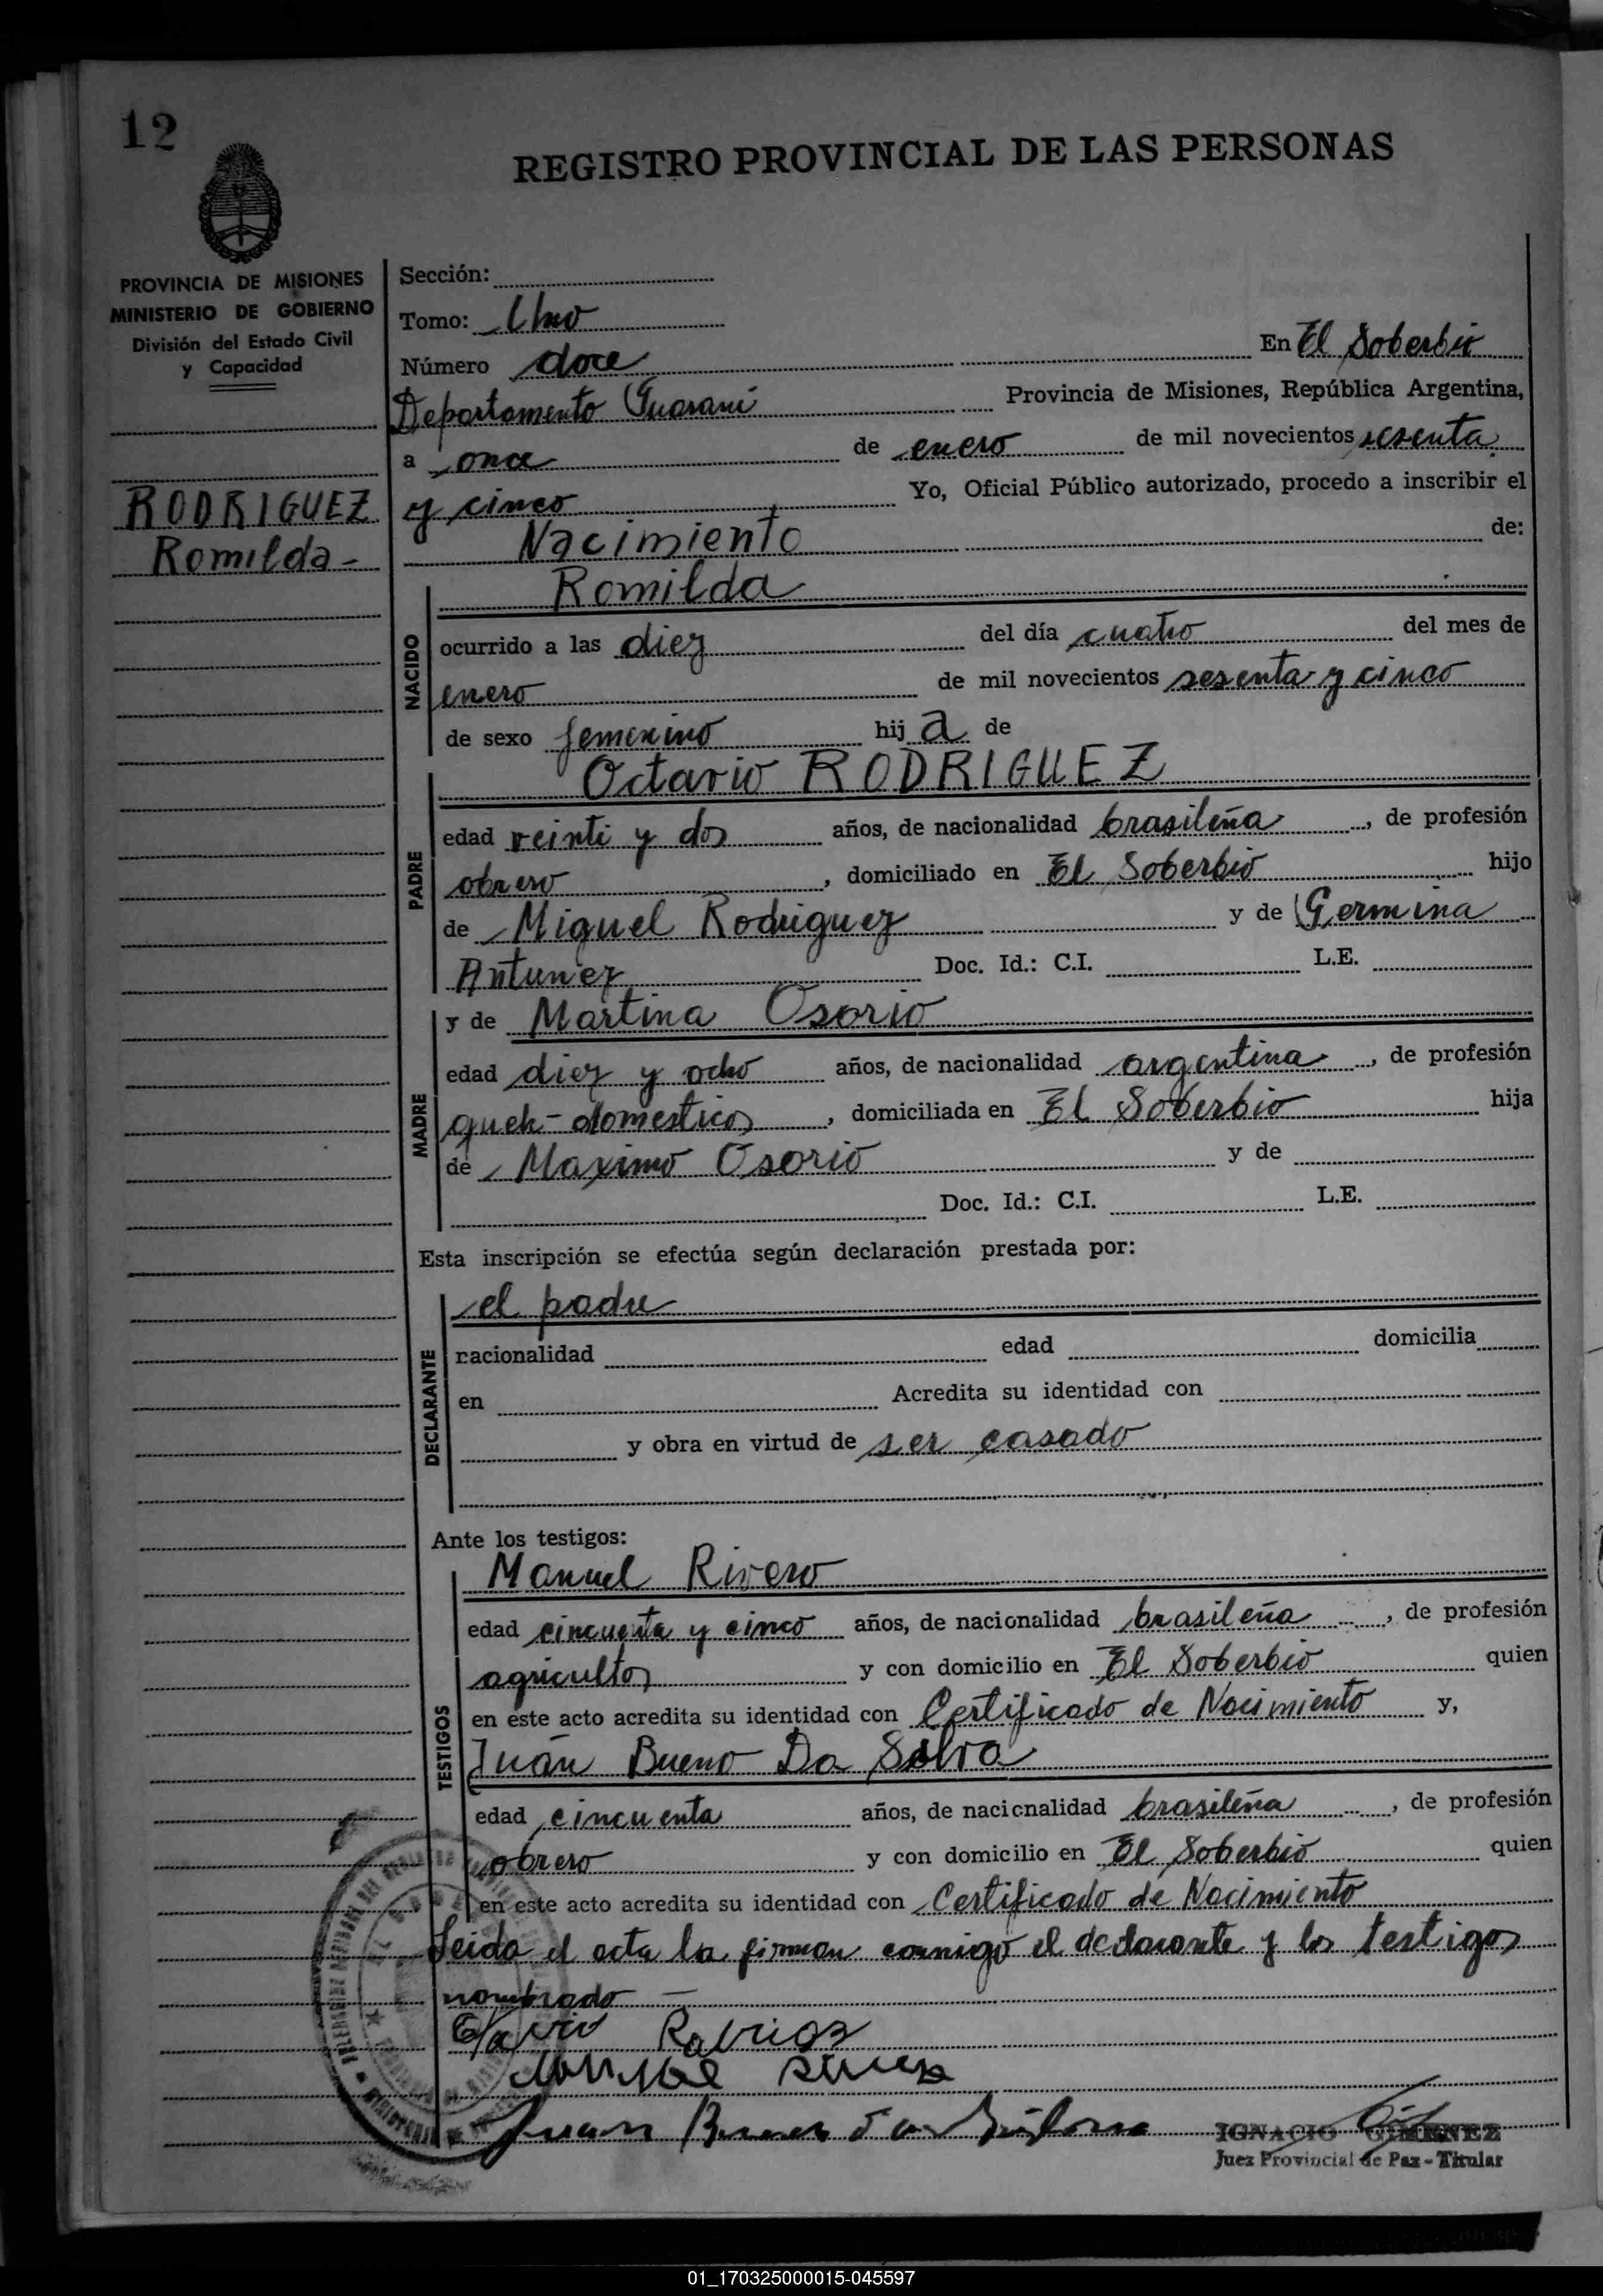 12
REGISTRO PROVINCIAL DE LAS PERSONAS
PROVINCIA DE MISIONES
MINISTERIO DE GOBIERNO
División del Estado Civil
y Capacidad
RODRIGUEZ
Romilda-
Sección:
Tomo: Uno
Número doce En El Soberbio
Departamento Guarani Provincia de Misiones, República Argentina,
a once de enero de mil novecientos sesenta
y cinco Yo, Oficial Público autorizado, procedo a inscribir el
Nacimiento de:
NACIDO
Romilda
ocurrido a las diez del día cuatro del mes de
enero de mil novecientos sesenta y cinco
de sexo femenino hij a de
PADRE
Octavio RODRIGUEZ
edad veinti y dos años, de nacionalidad brasileña, de profesión
obrero, domiciliado en El Soberbio hijo
de Miguel Rodriguez y de Germina
Antunez Doc. Id.: C.I. L.E.
MADRE
y de Martina Osorio
edad diez y ocho años, de nacionalidad argentina, de profesión
queh-domesticos, domiciliada en El Soberbio hija
de Maximo Osorio y de
Doc. Id.: C.I. L.E.
Esta inscripción se efectúa según declaración prestada por:
DECLARANTE
el padre
nacionalidad edad domicilia
en Acredita su identidad con
y obra en virtud de ser casado
Ante los testigos:
TESTIGOS
Manuel Rivero
edad cincuenta y cinco años, de nacionalidad brasileña, de profesión
agricultor y con domicilio en El Soberbio quien
en este acto acredita su identidad con Certificado de Nacimiento y,
Juan Bueno Da Silva
edad cincuenta años, de nacionalidad brasileña, de profesión
obrero y con domicilio en El Soberbio quien
en este acto acredita su identidad con Certificado de Nacimiento
Leida el acta la firman conmigo el declarante y los testigos
nombrado —
IGNACIO GIMENEZ
Juez Provincial de Paz - Titular
01_170325000015-045597